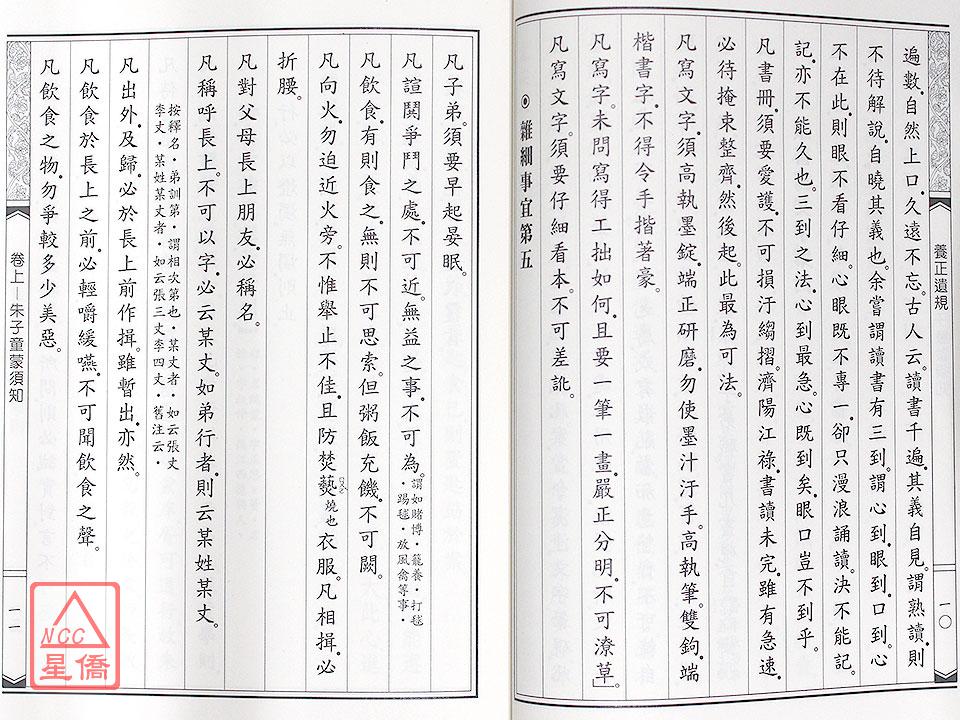 養正遺規
一〇
遍數。自然上口。久遠不忘。古人云。讀書千遍。其義自見。謂熟讀。則
不待解說。自曉其義也。余嘗謂讀書有三到。謂心到。眼到。口到。心
不在此。則眼不看仔細。心眼既不專一。卻只漫浪誦讀。決不能記。
記。亦不能久也。三到之法。心到最急。心既到矣。眼口豈不到乎。
凡書冊。須要愛護。不可損汙縐摺。濟陽江祿。書讀未完。雖有急速。
必待掩束整齊。然後起。此最為可法。
凡寫文字。須高執墨錠。端正研磨。勿使墨汁汙手。高執筆。雙鉤。端
楷書字。不得令手揩著豪。
凡寫字。未問寫得工拙如何。且要一筆一畫。嚴正分明。不可潦草」。
凡寫文字。須要仔細看本。不可差訛。
⊙雜細事宜第五
凡子弟。須要早起晏眠。
凡諠鬨爭鬥之處。不可近。無益之事。不可為。謂如賭博・籠養・打毬
・踢毬・放風禽等事・
凡飲食。有則食之。無則不可思索。但粥飯充饑。不可闕。
凡向火。勿迫近火旁。不惟舉止不佳。且防焚爇ㄖㄨㄛˋ燒也衣服。凡相揖。必
折腰。
凡對父母長上朋友。必稱名。
凡稱呼長上。不可以字。必云某丈。如弟行者。則云某姓某丈。
按釋名・弟訓第・謂相次第也・某丈者・如云張丈
李丈・某姓某丈者・如云張三丈李四丈・舊注云・
凡出外。及歸。必於長上前作揖。雖暫出。亦然。
凡飲食於長上之前。必輕嚼緩嚥。不可聞飲食之聲。
凡飲食之物。勿爭較多少美惡。
卷上—朱子童蒙須知
一一
NCC
星僑